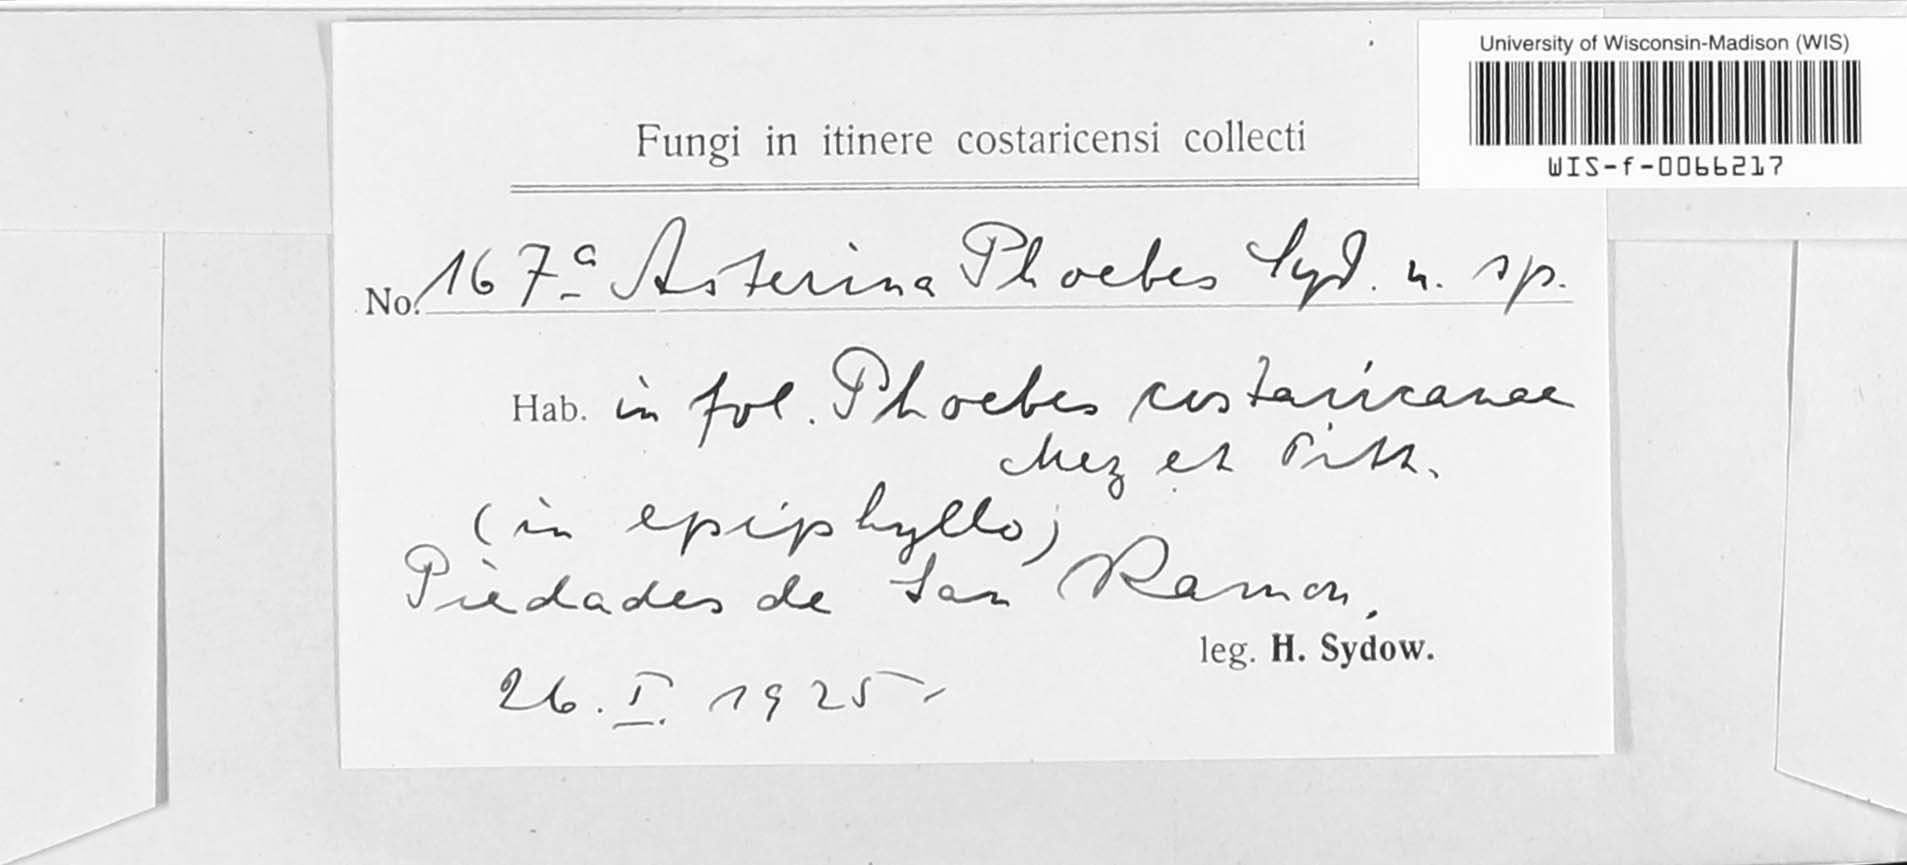 University of Wisconsin-Madison (WIS)
WIS-f-0066217
Fungi in itinere costaricensi collecti
No. 167a Asterina Phoebes Syd. n. sp.
Hab. in fol. Phoebes costaricanae
Mez et Pitt.
(in epiphyllo)
Piedades de San Ramon,
leg. H. Sydow.
26. I. 1925.